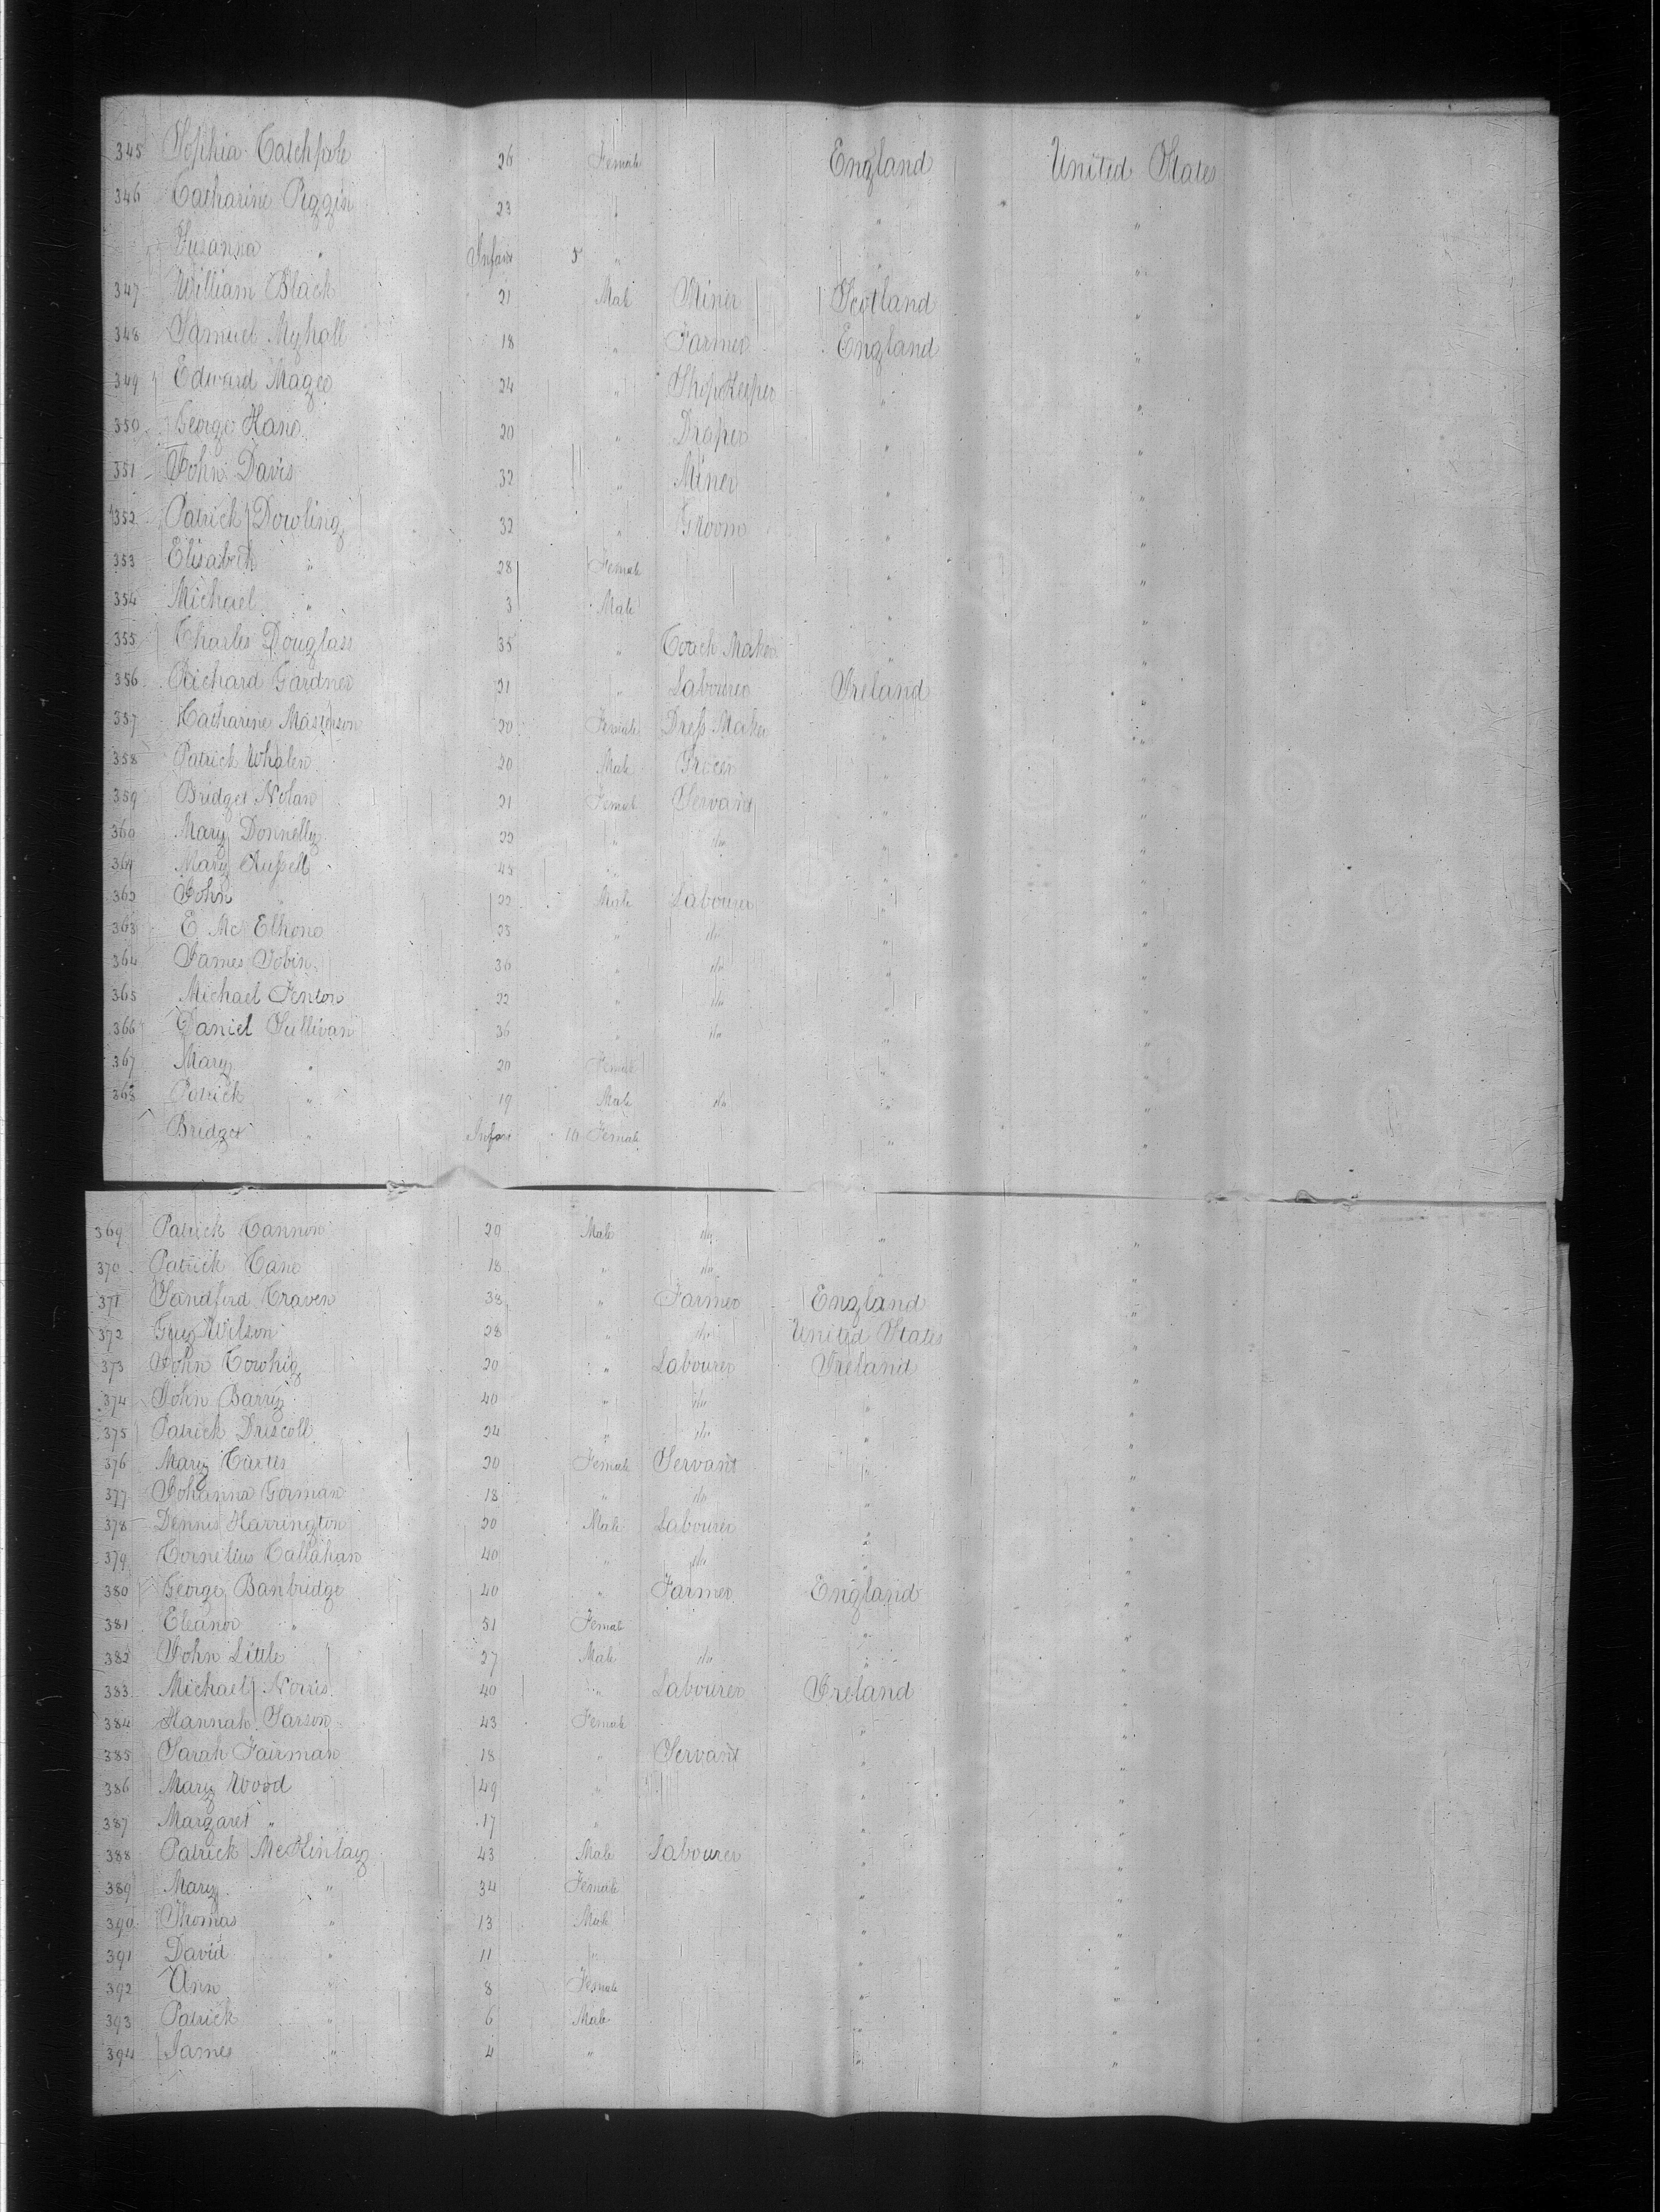 345 Sophia Catchpole 26 Female England United States
346 Catharine Piggin 23 " " "
Susanna " Infant 5 " " "
347 William Black 21 Male Miner Scotland "
348 Samuel Myhall 18 " Farmer England "
349 Edward Magee 24 " ShopKeeper " "
350 George Hans 20 " Draper " "
351 John Davis 32 " Miner " "
352 Patrick Dowling 32 " Groom " "
353 Elisabeth " 28 Female " "
354 Michael " 3 Male " "
355 Charles Douglass 35 " Coach Maker " "
356 Richard Gardner 21 " Labourer Ireland "
357 Catharine Masterson 20 Female Dress Maker " "
358 Patrick Whalen 20 Male Grocer " "
359 Bridget Nolan 21 Female Servant " "
360 Mary Donnelly 22 " do " "
361 Mary Russell 45 " " "
362 John " 22 Male Labourer " "
363 E. Mc Elhone 25 " do " "
364 James Tobin 36 " do " "
365 Michael Fenton 22 " do " "
366 Daniel Sullivan 36 " do " "
367 Mary " 20 Female " "
368 Patrick " 19 Male do " "
Bridget " Infant 10 Female " "
369 Patrick Cannon 20 Male do " "
370 Patrick Cane 18 " do " "
371 Sandford Craven 38 " Farmer England "
372 Guy Wilson 28 " do United States "
373 John Cowhig 20 " Labourer Ireland "
374 John Barry 40 " do " "
375 Patrick Driscoll 24 " do " "
376 Mary Curtis 20 Female Servant " "
377 Johanna Gorman 18 " do " "
378 Dennis Harrington 20 Male Labourer " "
379 Cornelius Callahan 40 " do " "
380 George Banbridge 40 " Farmer England "
381 Eleanor " 51 Female " "
382 John Little 27 Male do " "
383 Michael Norris 40 " Labourer Ireland "
384 Hannah Sarson 43 Female " "
385 Sarah Fairman 18 " Servant " "
386 Mary Wood 49 " " "
387 Margaret " 17 " " "
388 Patrick McKinlay 43 Male Labourer " "
389 Mary " 34 Female " "
390 Thomas " 13 Male " "
391 David " 11 " " "
392 Ann " 8 Female " "
393 Patrick " 6 Male " "
394 James " 4 " " "